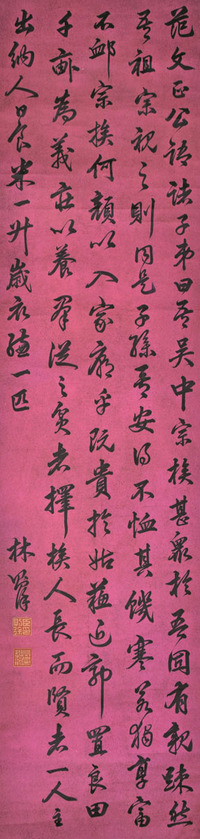 范文正公語諸子弟曰吾吴中宗族甚衆於吾固有親踈然
吾祖宗視之則同是子孫吾安得不恤其饑寒若獨享富
不卹宗族何顔以入家廟乎既貴於姑蘓近郭置良田
千畝為義庄以養羣從之貧者擇族人長而賢者一人主
出納人日食米一升歲衣縑一匹
林